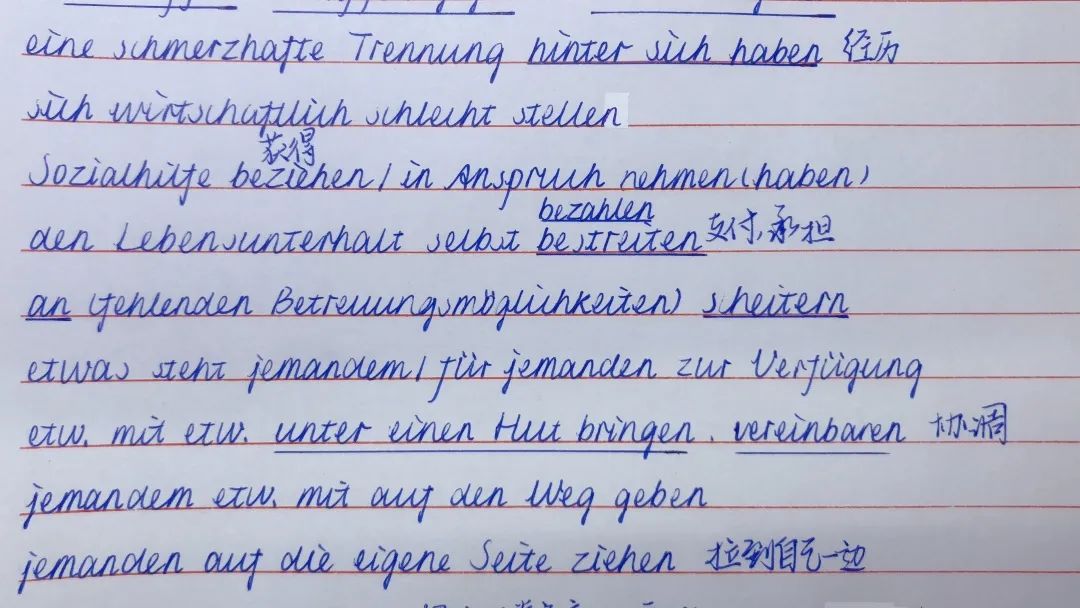 eine schmerzhafte Trennung hinter sich haben 经历
sich wirtschaftlich schlecht stellen
获得
Sozialhilfe beziehen / in Anspruch nehmen (haben)
bezahlen
den Lebensunterhalt selbst bestreiten 支付、承担
an (fehlenden Betreuungsmöglichkeiten) scheitern
etwas steht jemandem / für jemanden zur Verfügung
etw. mit etw. unter einen Hut bringen. vereinbaren 协调
jemandem etw. mit auf den Weg geben
jemanden auf die eigene Seite ziehen 拉到自己一边